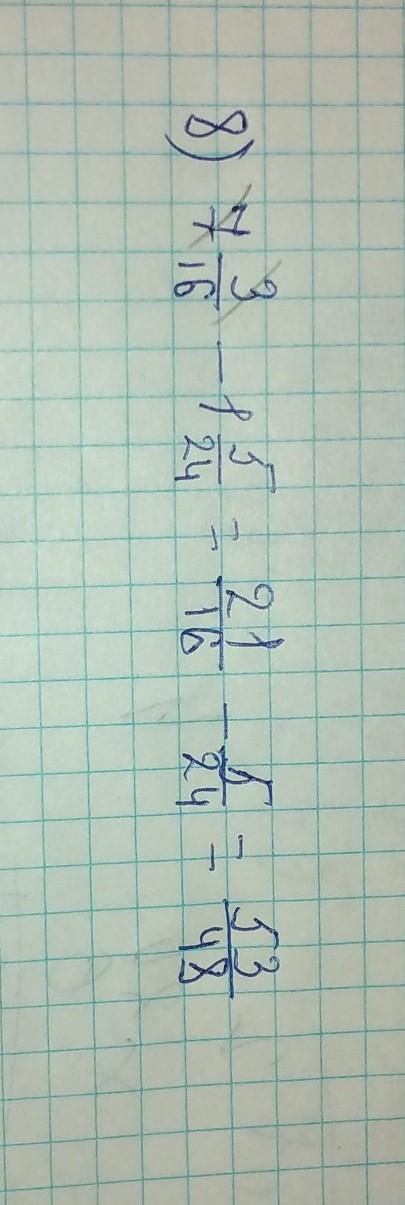 8) 7 3/16 - 1 5/24 = 21/16 - 5/24 = 53/48